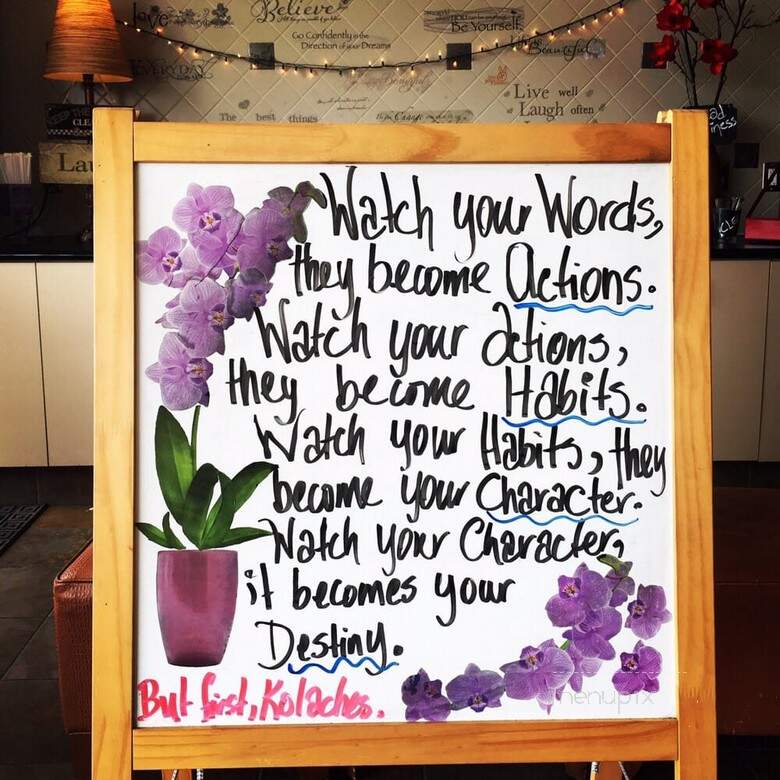 love
Believe
Go Confidently in the
Direction of your Dreams
Be Yourself
Beautiful
EVERYDAY
Live well
Laugh often
The best things
KEEP THE
CLE
La
Watch your Words,
they become Actions.
Watch your actions,
they become Habits.
Watch your Habits, they
become your Character.
Watch your Character,
it becomes your
Destiny.
But first, Kolaches.
menupix